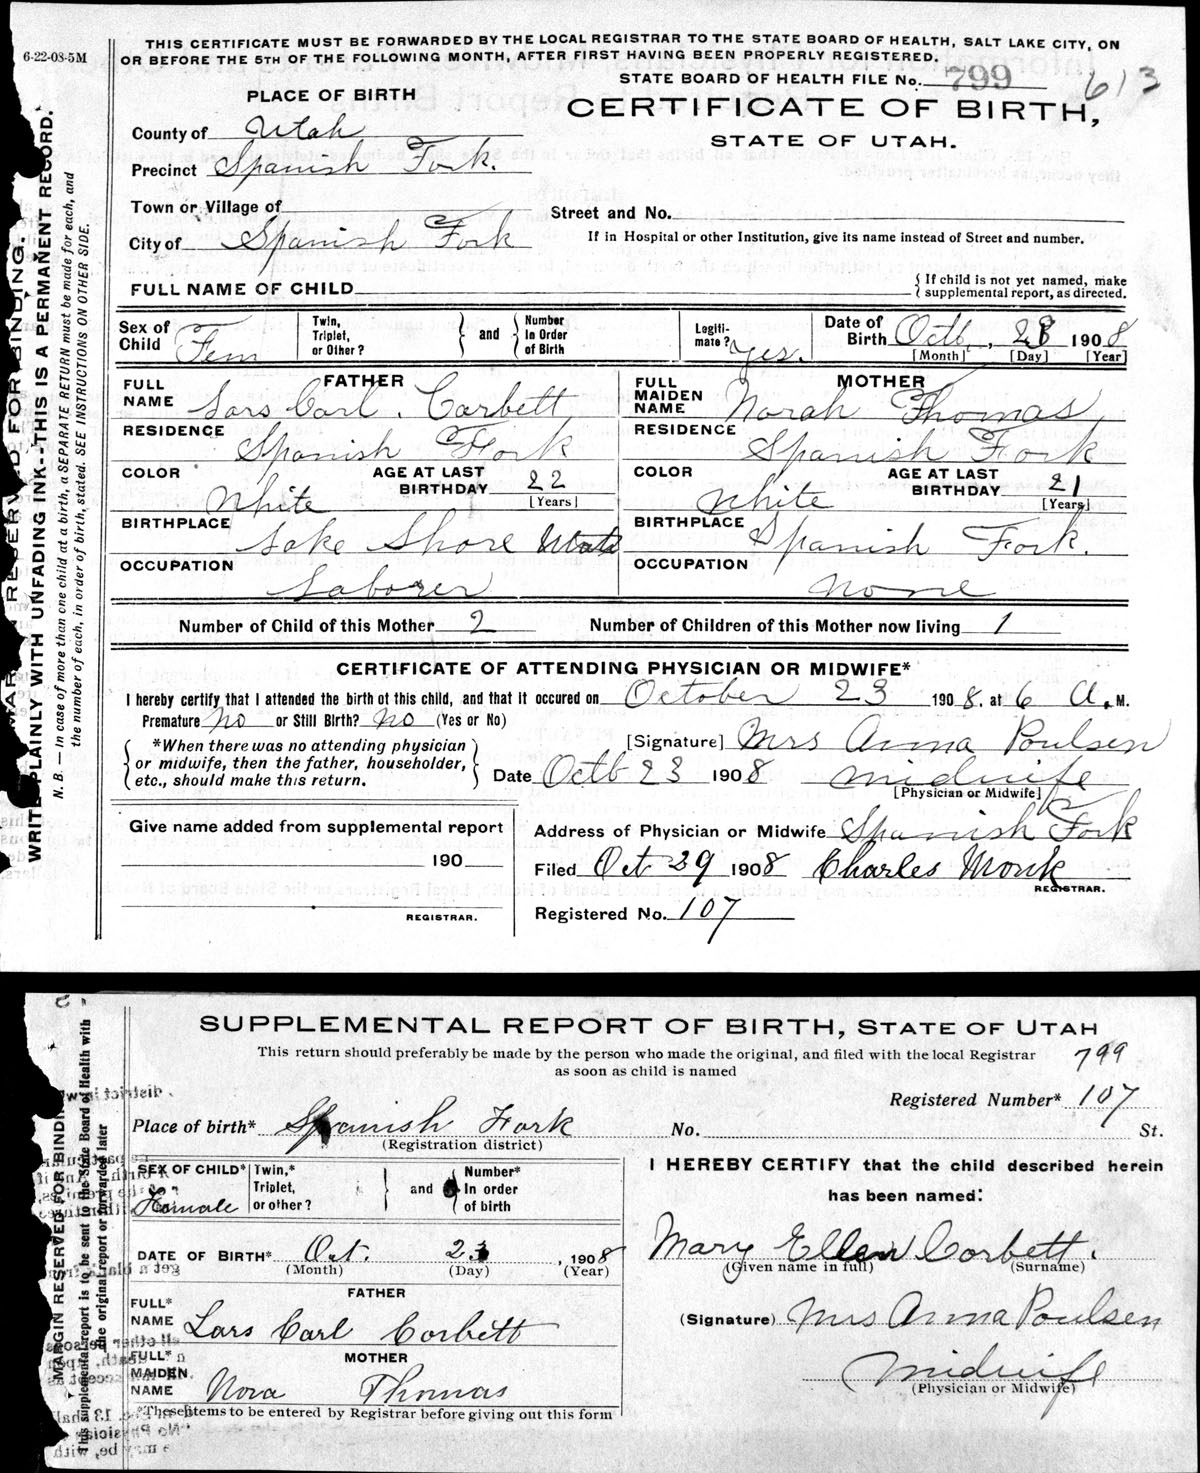 6-22-08-5M
THIS CERTIFICATE MUST BE FORWARDED BY THE LOCAL REGISTRAR TO THE STATE BOARD OF HEALTH, SALT LAKE CITY, ON
OR BEFORE THE 5TH OF THE FOLLOWING MONTH, AFTER FIRST HAVING BEEN PROPERLY REGISTERED.
STATE BOARD OF HEALTH FILE No. 799 613
PLACE OF BIRTH
CERTIFICATE OF BIRTH,
STATE OF UTAH.
County of Utah
Precinct Spanish Fork.
Town or Village of
Street and No.
City of Spanish Fork
If in Hospital or other Institution, give its name instead of Street and number.
FULL NAME OF CHILD
If child is not yet named, make
supplemental report, as directed.
Sex of Child Fem
Twin, Triplet, or Other?
and
Number in Order of Birth
Legiti-mate? Yes.
Date of Birth Octb, 23 1908
[Month] [Day] [Year]
FATHER
FULL NAME Lars Carl. Corbett
RESIDENCE Spanish Fork
COLOR White
AGE AT LAST BIRTHDAY 22 [Years]
BIRTHPLACE Lake Shore Utah
OCCUPATION Laborer
MOTHER
FULL MAIDEN NAME Norah Thomas
RESIDENCE Spanish Fork
COLOR White
AGE AT LAST BIRTHDAY 21 [Years]
BIRTHPLACE Spanish Fork.
OCCUPATION None
Number of Child of this Mother 2 Number of Children of this Mother now living 1
CERTIFICATE OF ATTENDING PHYSICIAN OR MIDWIFE*
I hereby certify that I attended the birth of this child, and that it occured on October 23 1908. at 6 A. M.
Premature no or Still Birth? No (Yes or No)
*When there was no attending physician
or midwife, then the father, householder,
etc., should make this return.
[Signature] Mrs Anna Poulsen
Date Octb 23 1908 Midwife
[Physician or Midwife]
Give name added from supplemental report
190
REGISTRAR.
Address of Physician or Midwife Spanish Fork
Filed Oct 29 1908 Charles Monk
REGISTRAR.
Registered No. 107
WRITE PLAINLY WITH UNFADING INK--THIS IS A PERMANENT RECORD.
N. B. — In case of more than one child at a birth, a SEPARATE RETURN must be made for each, and
the number of each, in order of birth, stated. SEE INSTRUCTIONS ON OTHER SIDE.
SUPPLEMENTAL REPORT OF BIRTH, STATE OF UTAH
This return should preferably be made by the person who made the original, and filed with the local Registrar
as soon as child is named
799
Registered Number* 107
Place of birth* Spanish Fork No. St.
(Registration district)
SEX OF CHILD* Female
Twin,* Triplet, or other?
and
Number* In order of birth
DATE OF BIRTH* Oct. 23, 1908
(Month) (Day) (Year)
FATHER
FULL* NAME Lars Carl Corbett
MOTHER
FULL* MAIDEN NAME Nora Thomas
*These items to be entered by Registrar before giving out this form
I HEREBY CERTIFY that the child described herein
has been named:
Mary Ellen Corbett.
(Given name in full) (Surname)
(Signature) Mrs Anna Poulsen
Midwife
(Physician or Midwife)
MARGIN RESERVED FOR BINDING
This supplemental report is to be sent to the State Board of Health with
the original report or forwarded later